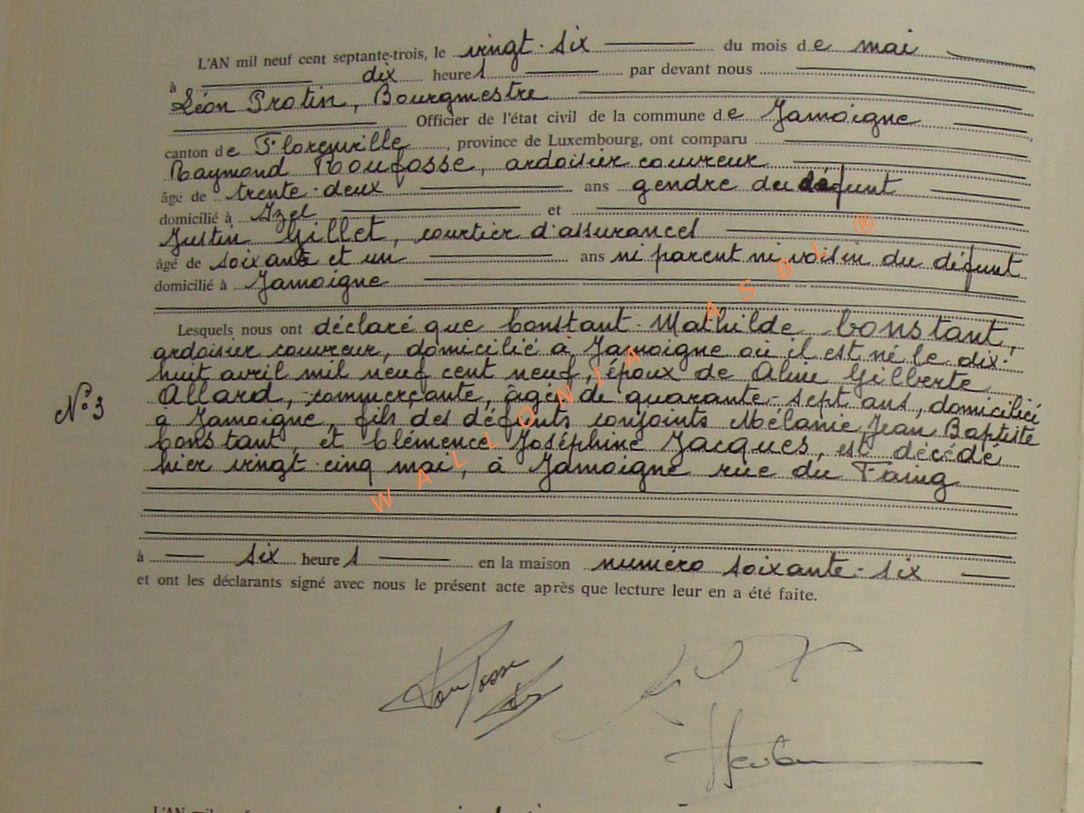 L'AN mil neuf cent septante-trois, le vingt-six du mois de mai
à dix heures par devant nous
Léon Protin, Bourgmestre
Officier de l'état civil de la commune de Jamoigne
canton de Florenville, province de Luxembourg, ont comparu
Raymond Roufosse, ardoisier couvreur
âgé de trente-deux ans gendre du défunt
domicilié à Izel et
Justin Gillet, courtier d'assurances
âgé de soixante et un ans ni parent ni voisin du défunt
domicilié à Jamoigne
Lesquels nous ont déclaré que Constant Mathilde Constant,
ardoisier couvreur, domicilié à Jamoigne où il est né le dix-
huit avril mil neuf cent neuf, époux de Aline Gilberte
N°3 Allard, commerçante, âgée de quarante-sept ans, domiciliée
à Jamoigne, fils des défunts conjoints Mélanie Jean Baptiste
Constant, et Clémence Joséphine Jacques, est décédé
hier vingt-cinq mai, à Jamoigne rue du Faing
à six heures en la maison numéro soixante-six
et ont les déclarants signé avec nous le présent acte après que lecture leur en a été faite.
WALLONIA ASBL ®
Roufosse